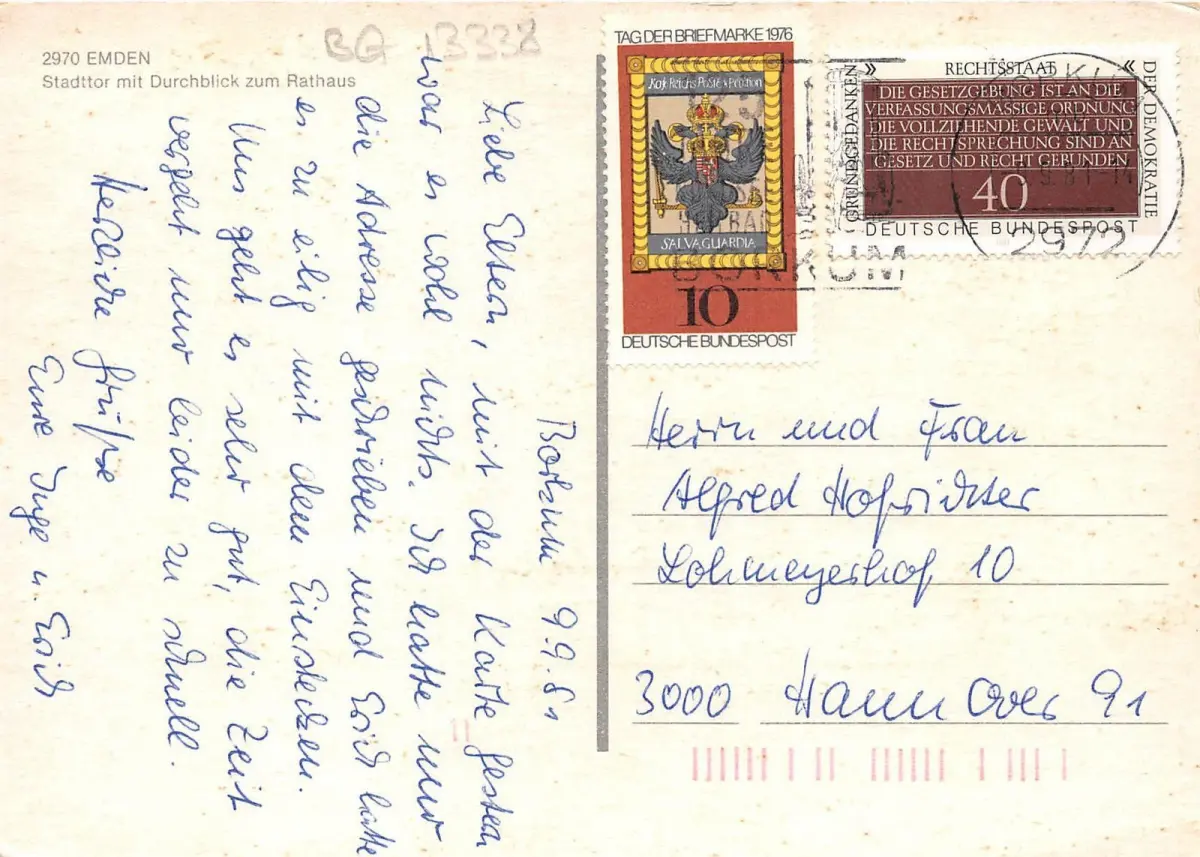 BG 13338
2970 EMDEN
Stadttor mit Durchblick zum Rathaus
Borkum 9.9.81
Liebe Eltern, mit der Karte gestern
war es wohl nichts. Ich hatte nur
die Adresse geschrieben und Erich hatte
es zu eilig mit dem Einstecken.
Uns geht es sehr gut, die Zeit
vergeht nur leider zu schnell.
Herzliche Grüße
Eure Inge u. Erich
TAG DER BRIEFMARKE 1976
Kais. Reichs Post Expedition
SALVA GUARDIA
10
DEUTSCHE BUNDESPOST
GRUNDGEDANKEN
» RECHTSSTAAT «
DER DEMOKRATIE
DIE GESETZGEBUNG IST AN DIE
VERFASSUNGSMÄSSIGE ORDNUNG
DIE VOLLZIEHENDE GEWALT UND
DIE RECHTSPRECHUNG SIND AN
GESETZ UND RECHT GEBUNDEN
40
DEUTSCHE BUNDESPOST
BORKUM
9.81-14
2972
Herrn und Frau
Alfred Hofrichter
Lohmeyerhof 10
3000 Hannover 91